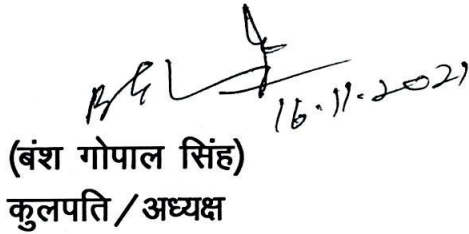 16.11.2021
(बंश गोपाल सिंह)
कुलपति/अध्यक्ष